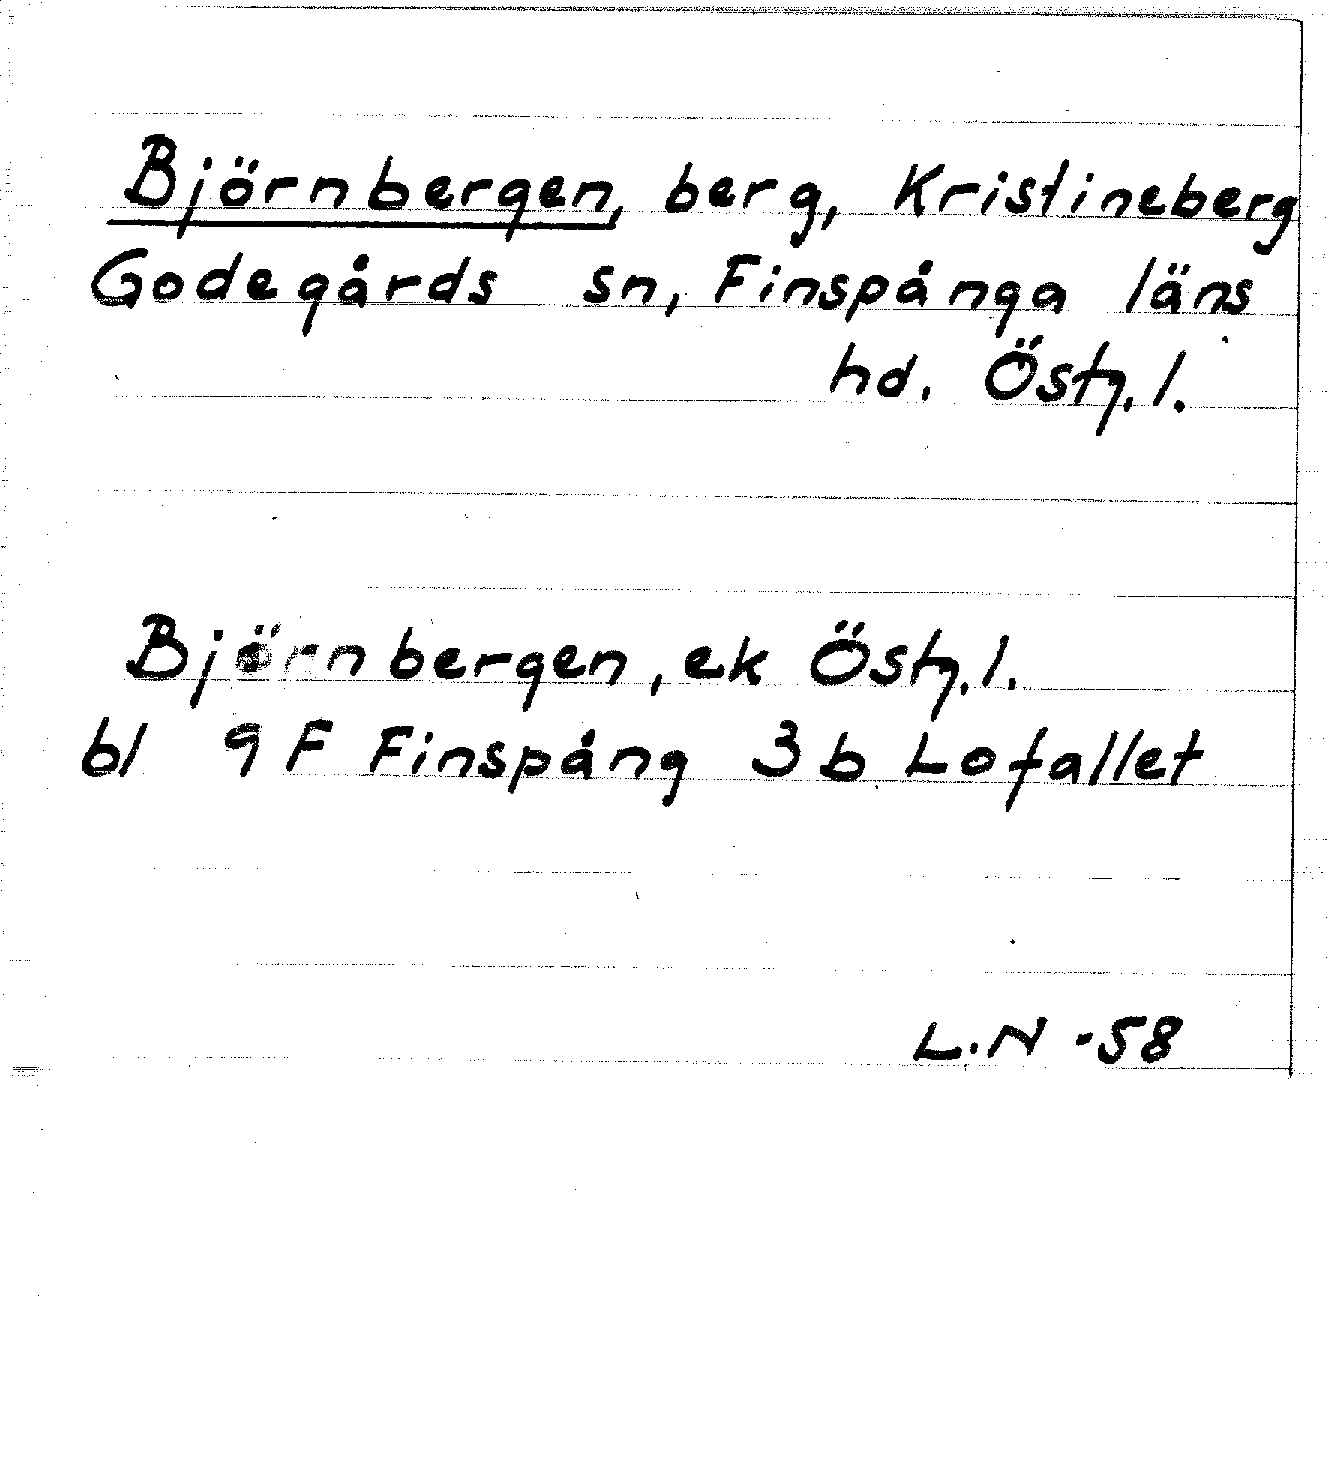 Björnbergen, berg, Kristineberg
Godegårds sn, Finspånga läns
hd. Östg. l.
Björnbergen, ek Östg. l.
bl 9 F Finspång 3 b Lofallet
L.N -58